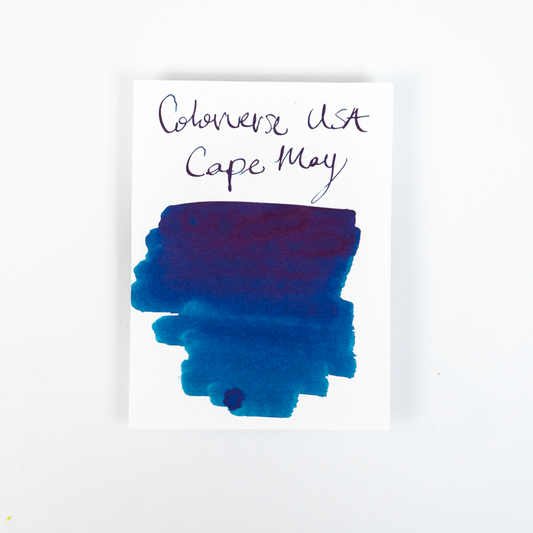 Colorverse USA
Cape May